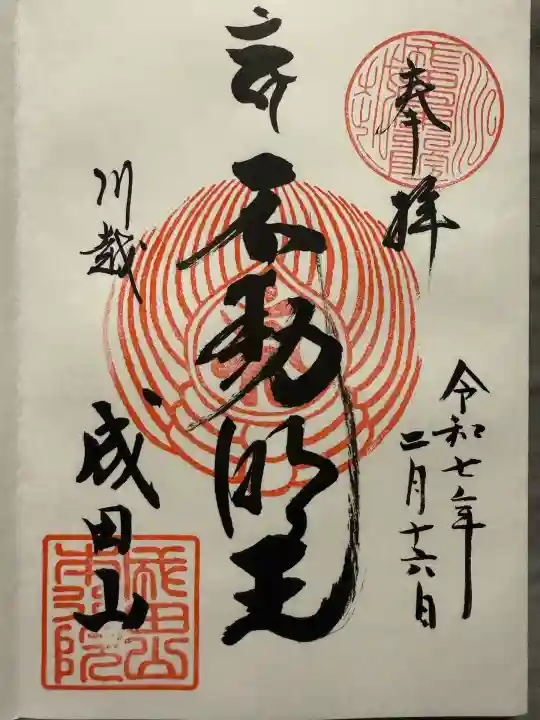 奉拝
令和七年
二月十六日
不動明王
川越
成田山
成田山
本行院